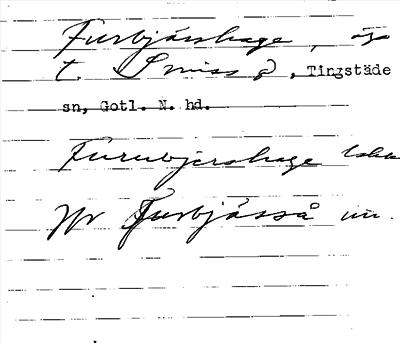 Furbjärshage, äga
t. Smiss g, Tingstäde
sn, Gotl. N. hd.
Furubjershage
Nr Furbjässå un.